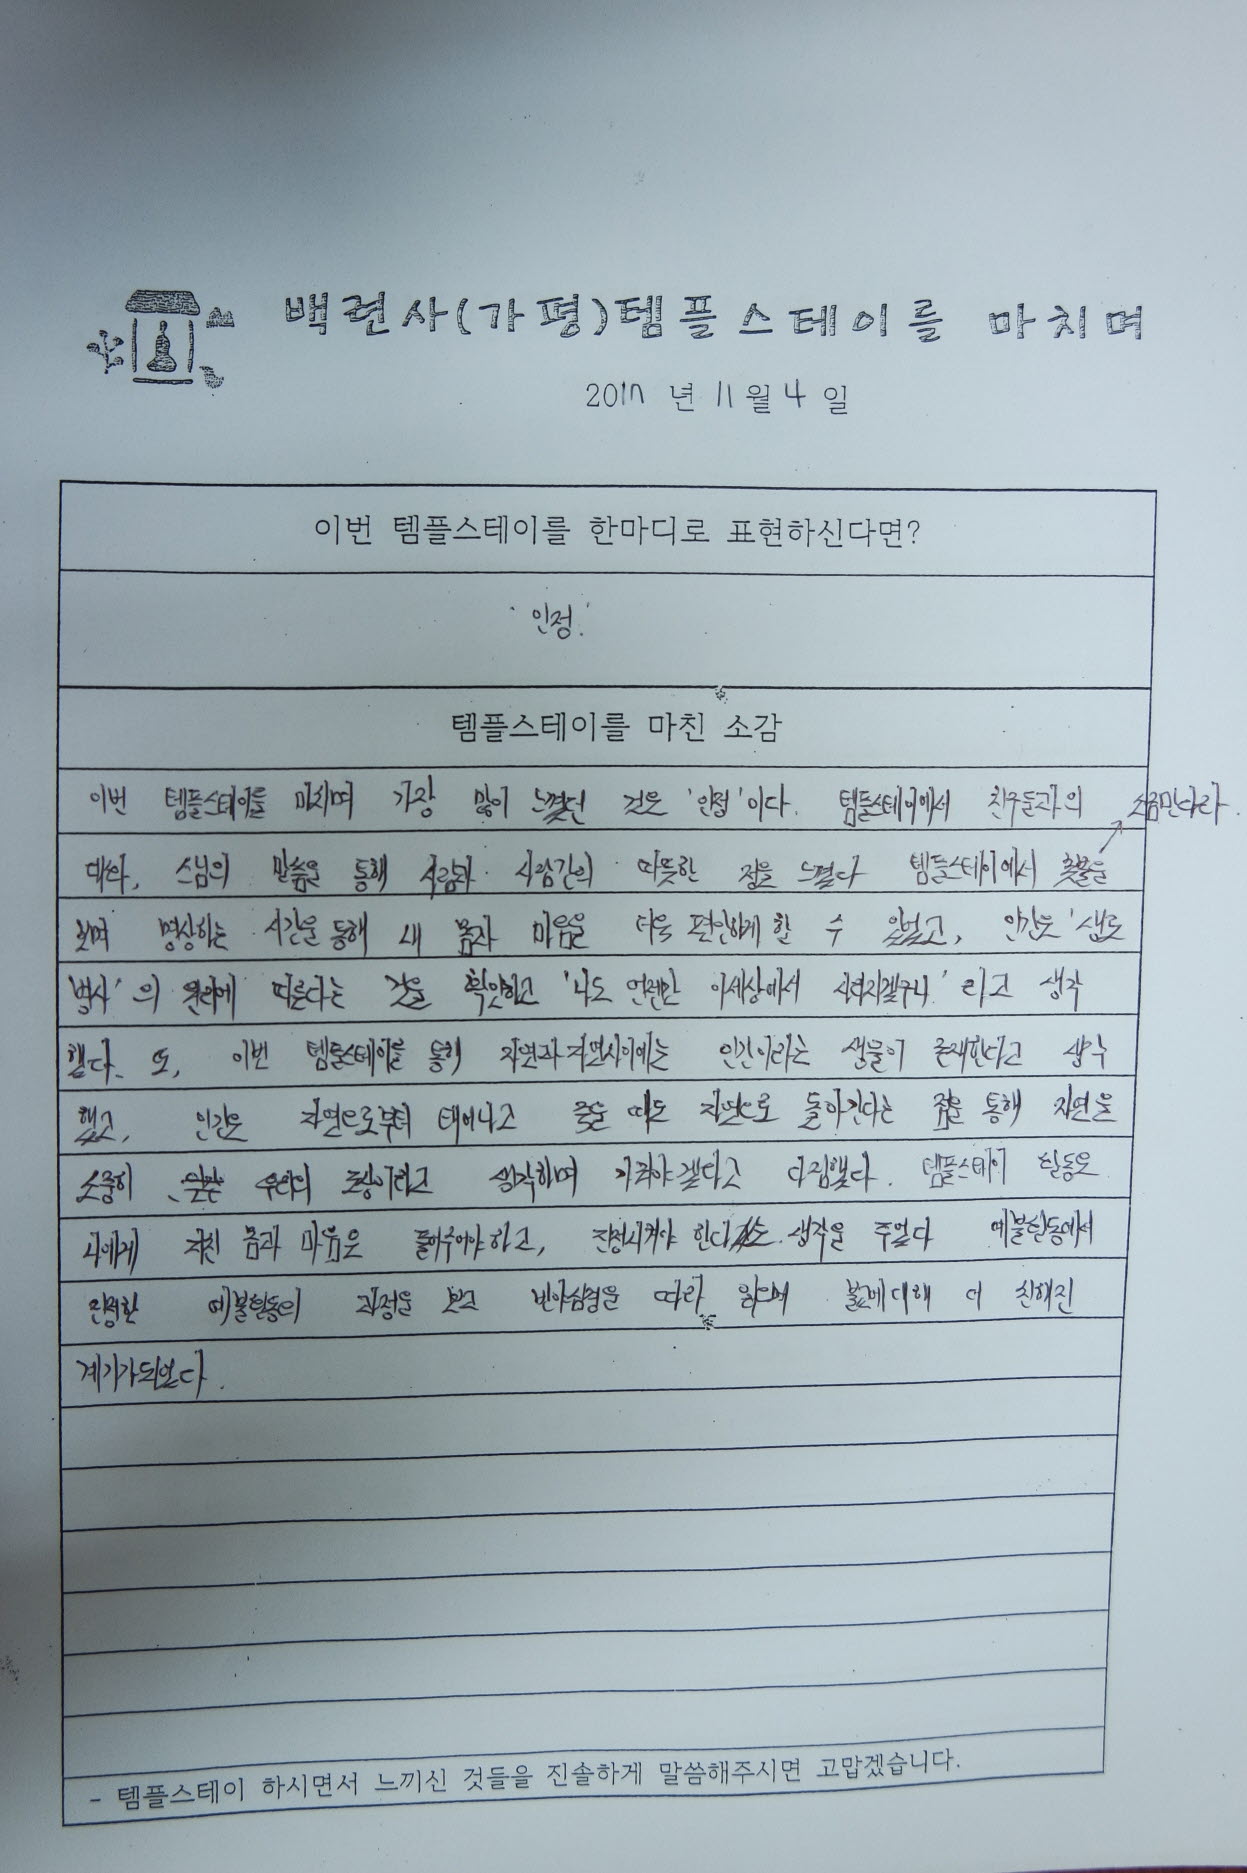 백련사(가평)템플스테이를 마치며
2017 년 11월 4 일
이번 템플스테이를 한마디로 표현하신다면?
'인정'
템플스테이를 마친 소감
이번 템플스테이를 마치며 가장 많이 느꼈던 것은 '인정'이다. 템플스테이에서 친구들과의
소금만다라.
대화, 스님의 말씀을 통해 사람과 사람간의 따뜻한 정을 느꼈다 템플스테이에서 촛불을
보며 명상하는 시간을 통해 내 몸과 마음을 더욱 편안하게 할 수 있었고, 인간은 '생로
병사'의 원리에 따른다는 것을 확인하고 '나도 언젠간 이세상에서 사라지겠구나.'라고 생각
했다. 또, 이번 템플스테이를 통해 자연과 자연사이에는 인간이라는 생물이 존재한다고 생각
했고, 인간은 자연으로부터 태어나고 죽을 때도 자연으로 돌아간다는 점을 통해 자연을
소중히 우리의 조상이라고 생각하며 가꿔야겠다고 다짐했다. 템플스테이 활동은
나에게 지친 몸과 마음은 풀어주어야하고, 진정시켜야 한다 생각을 주었다 예불활동에서
진정한 예불활동의 과정을 보고 반야심경을 따라 읽으며 불교에대해 더 친해진
계기가되었다.
- 템플스테이 하시면서 느끼신 것들을 진솔하게 말씀해주시면 고맙겠습니다.